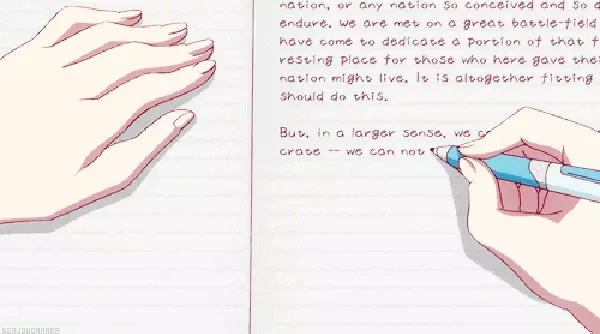 nation, or any nation so conceived and so d
endure. We are met on a great battle-field
have come to dedicate a portion of that f
resting place for those who here gave thei
nation might live. It is altogether fitting
should do this.
But, in a larger sense, we c
crate -- we can not
SENJOUGAHARA